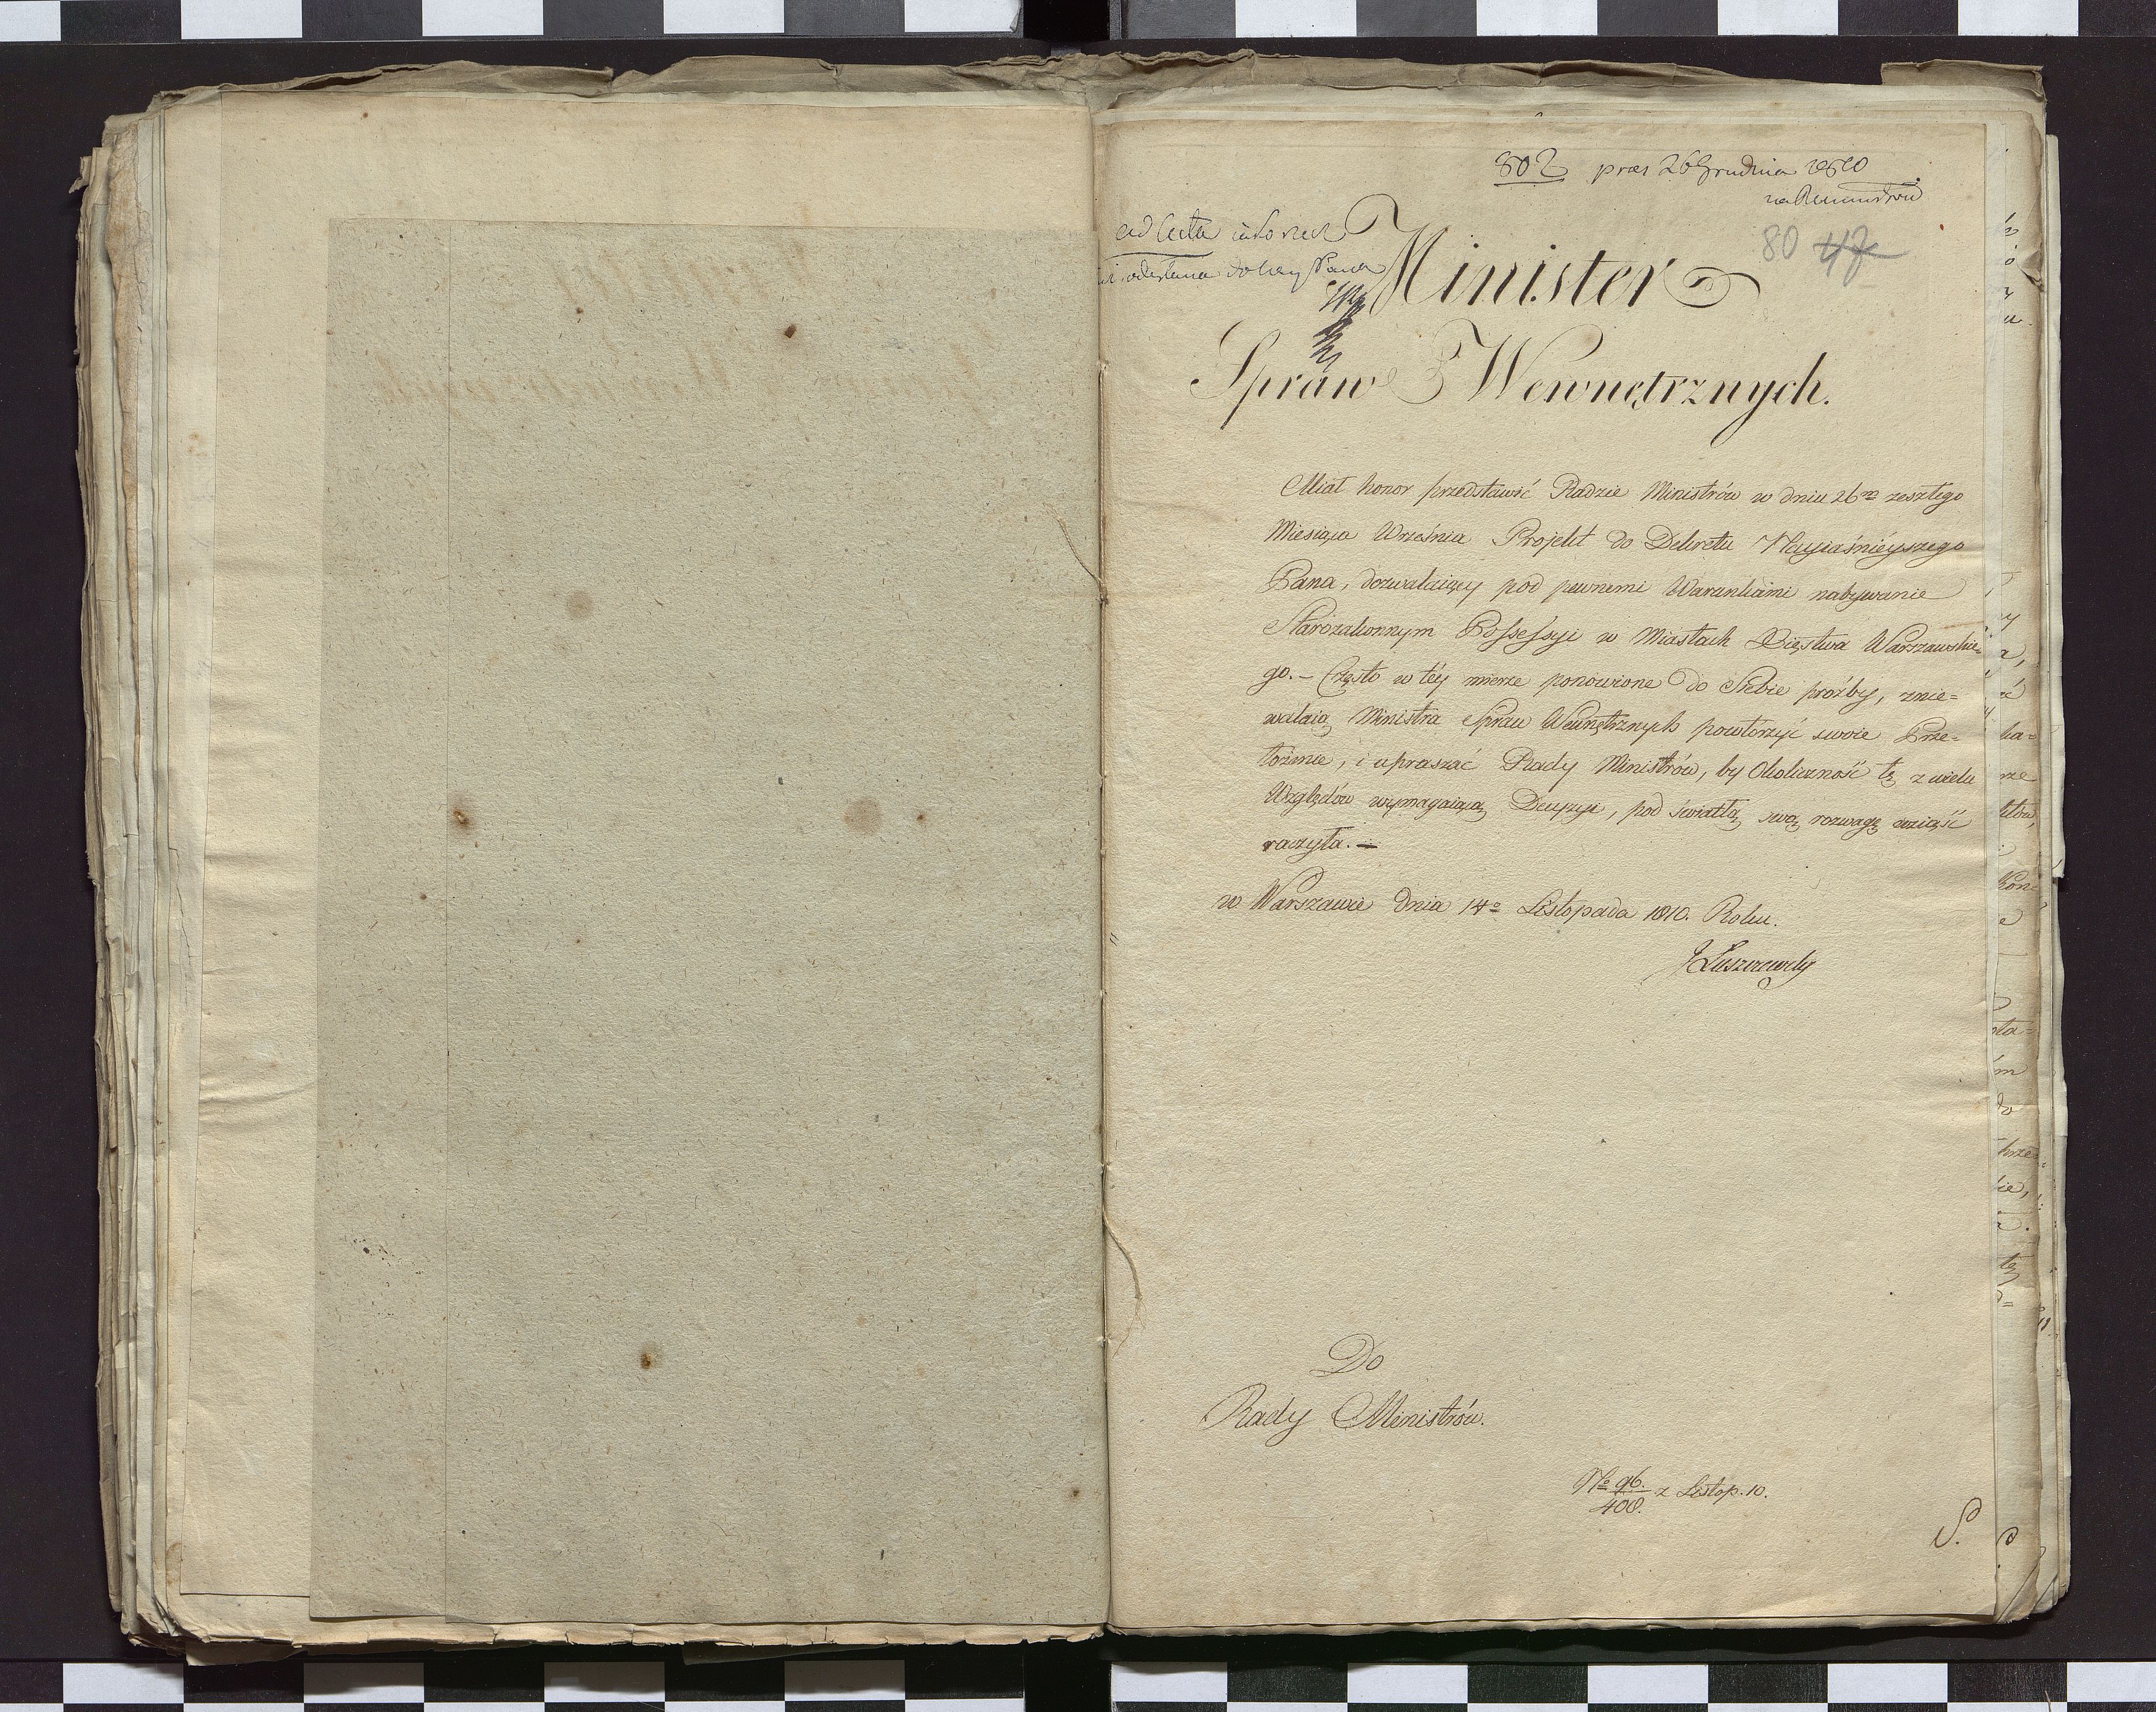 802 præs 26 Grudnia 1810
na R ministrów
ad acta
80 47
Minister
Spraw Wewnętrznych.
Miał honor przedstawić Radzie Ministrów w dniu 26ᵐ zeszłego
Miesiąca Września Projekt do Dekretu Nayiaśniéyszego
Pana, dozwalaiący pod pewnemi Warunkami nabywanie
Starozakonnym Possessyi w Miastach Xięstwa Warszawskie=
go. – Często w téy mierze ponowione do Siebie proźby, znie=
walaią Ministra Spraw Wewnętrznych powtórzyć swoie Prze=
łożenie, i upraszać Rady Ministrów, by Okoliczność tę z wielu
Względów wymagaiącą Decyzyi, pod światłą swą rozwagę wziąść
raczyła. –
w Warszawie dnia 14º Listopada 1810. Roku.
J Łuszczewsky
Do
Rady Ministrów.
Nº 96./408. z Listop. 10.
S.